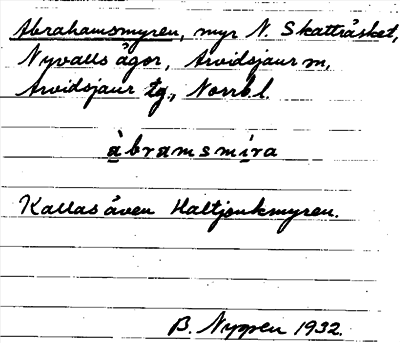 Abrahamsmyren, myr N. Skatträsket,
Nyvalls ägor, Arvidsjaur sn,
Arvidsjaur tg., Norrb l.
àbramsmíra
Kallas även Haltjonkmyren.
B. Nygren 1932.